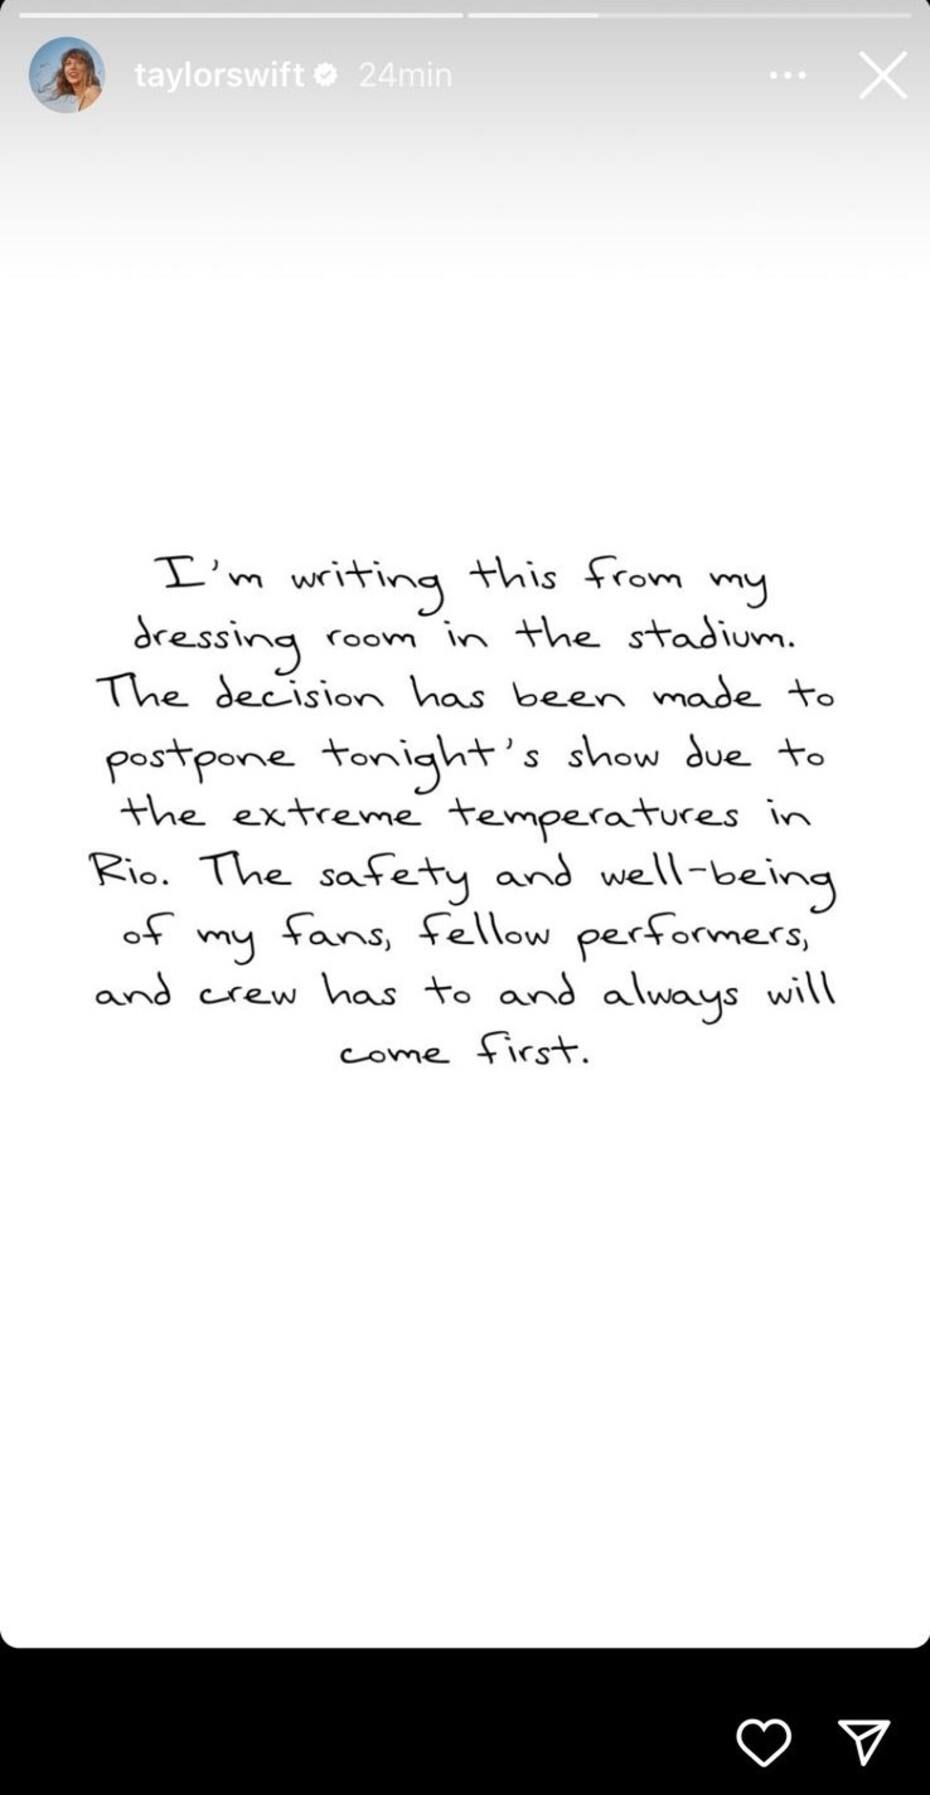 taylorswift 24min
I'm writing this from my
dressing room in the stadium.
The decision has been made to
postpone tonight's show due to
the extreme temperatures in
Rio. The safety and well-being
of my fans, fellow performers,
and crew has to and always will
come first.